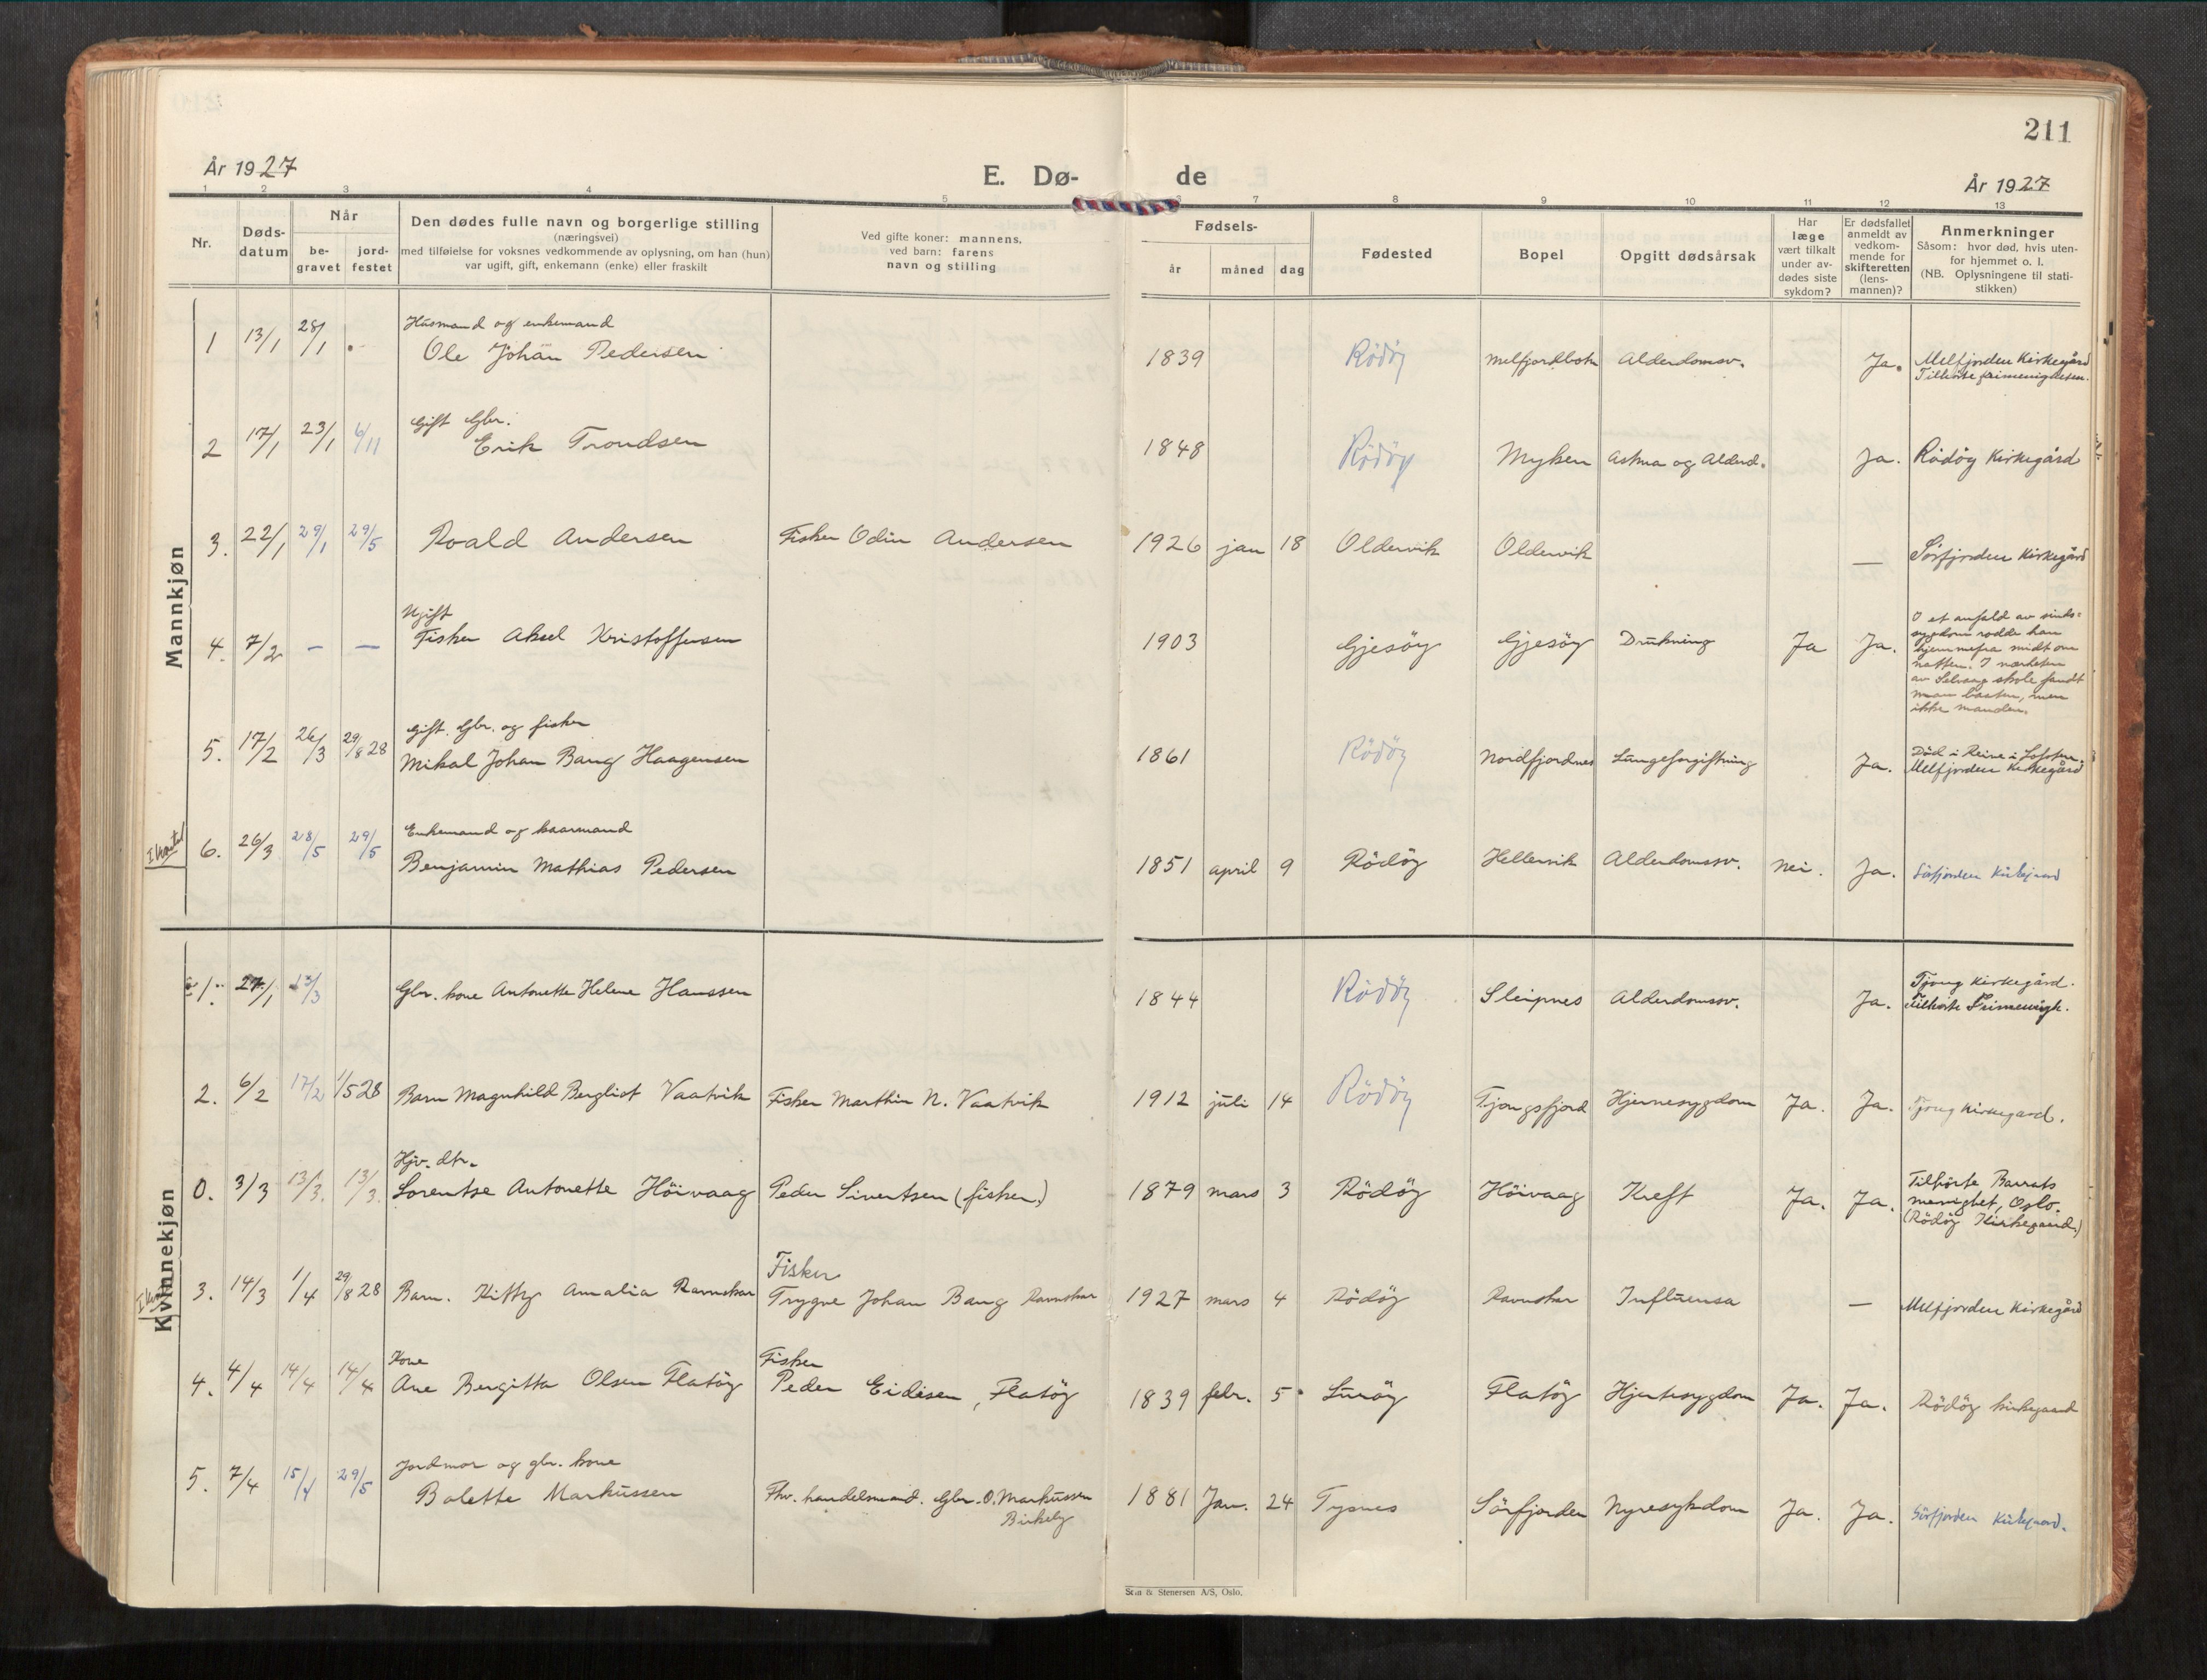 211
År 1927
E. Dø-
de
År 1927
1 2 3 4 5 6 7 8 9 10 11 12 13
Nr.
Døds-
datum
Når
be-
gravet
jord-
festet
Den dødes fulle navn og borgerlige stilling
(næringsvei)
med tilføielse for voksnes vedkommende av oplysning, om han (hun)
var ugift, gift, enkemann (enke) eller fraskilt
Ved gifte koner: mannens.
ved barn: farens
navn og stilling
Fødsels-
år
måned
dag
Fødested
Bopel
Opgitt dødsårsak
Har
læge
vært tilkalt
under av-
dødes siste
sykdom?
Er dødsfallet
anmeldt av
vedkom-
mende for
skifteretten
(lens-
mannen)?
Anmerkninger
Såsom: hvor død, hvis uten-
for hjemmet o. l.
(NB. Oplysningene til stati-
stikken)
Mannkjøn
Husmand og enkemand
1 13/1 28/1 Ole Johan Pedersen 1839 Rödöy Melfjordbotn Alderdomssv. Ja. Melfjorden Kirkegård
Tilhörte frimenigheten.
Gift Gbr.
2 17/1 23/1 6/11 Erik Trondsen 1848 Rödöy Myken Astma og Alderd. Ja. Rödöy Kirkegård
3. 22/1 29/1 29/5 Roald Andersen Fisker Odin Andersen 1926 jan 18 Oldervik Oldervik — Sörfjorden Kirkegård
Ugift
4. 7/2 – — Fisker Aksel Kristoffersen 1903 Gjesöy Gjesöy Drukning Ja Ja.
I et anfald av sinds-
sygdom rodde han
hjemmefra midt om
natten. I nærheten
av Selvaag skole fandt
man baaten, men
ikke manden.
Gift. Gbr. og fisker
5. 17/2 26/3 29/8 28 Mikal Johan Bang Haagensen 1861 Rödöy Nordfjordnes Lungeforgiftning Ja. Död i Reine i Lofoten.
Melfjorden Kirkegård
Enkemand og kaarmand
6. 26/3 28/5 29/5 Benjamin Mathias Pedersen 1851 april 9 Rödöy Hellervik Alderdomssv. Nei. Ja. Sörfjorden Kirkegaard
Kvinnekjøn
1. 27/1 13/3 Gbr. kone Antonette Helene Hanssen 1844 Rödöy Sleipnes Alderdomssv. Ja. Tjong Kirkegård.
Tilhörte Frimenigh.
2. 6/2 17/2 1/5 28 Barn Magnhild Bergliot Vaatvik Fisker Marthin N. Vaatvik 1912 juli 14 Rödöy Tjongsfjord Hjernesygdom Ja. Ja. Tjong Kirkegard.
Hjv. dtr.
0. 3/3 13/3. 13/3. Lorentse Antonette Höivaag Peder Sivertsen (fisker.) 1879 mars 3 Rödöy Höivaag Kreft Ja. Ja. Tilhörte Barrats
menighet, Oslo.
(Rödöy Kirkegaard.)
Fisker
3. 14/3 1/4 29/8 28 Barn. Kitty Amalia Ravnskar Trygve Johan Bang Ravnskar 1927 mars 4 Rödöy Ravnskar Influensa — Melfjorden Kirkegård
Kone Fisker
4. 4/4 14/4 14/4 Ane Bergitta Olsen Flatöy Peder Eidisen, Flatöy 1839 febr. 5 Luröy Flatöy Hjertesygdom Ja. Ja. Rödöy kirkegaard
Jordmor og gbr. kone
5. 7/4 15/4 29/5 Bolette Markussen Fhv. handelsmand. Gbr. O. Markussen 1881 Jan. 24 Tysnes Sörfjorden Nyresykdom Ja. Ja. Sörfjorden Kirkegaard.
Birkely
Sem & Stenersen A/S, Oslo.